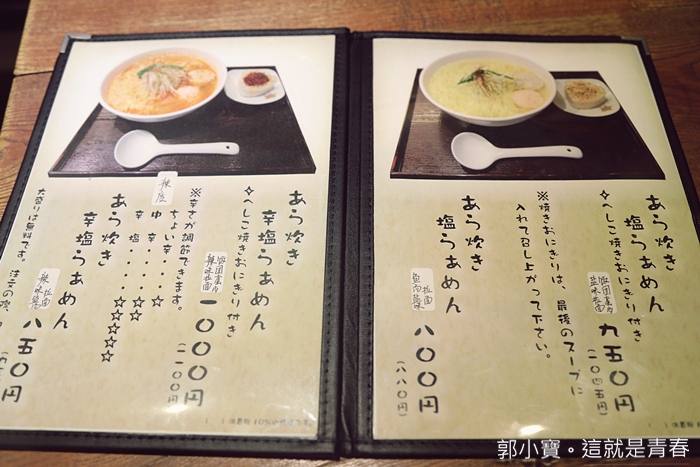 あら炊き
塩らぁめん
✧へしこ焼きおにぎり付き
九五〇円
(一〇四五円)
※焼きおにぎりは、最後のスープに
入れて召し上がって下さい。
あら炊き
塩らぁめん
拉面
魚肉鹽味
八〇〇円
(八八〇円)
あら炊き
辛塩らぁめん
✧へしこ焼きおにぎり付き
一〇〇〇円
(一一〇〇円)
※辛さが調節できます。
ちょい辛・・☆
中辛・・・☆☆☆
辛塩・・・☆☆☆☆☆
辣度
あら炊き
辛塩らぁめん
拉面
八五〇円
大盛りは無料です。
郭小寶。這就是青春